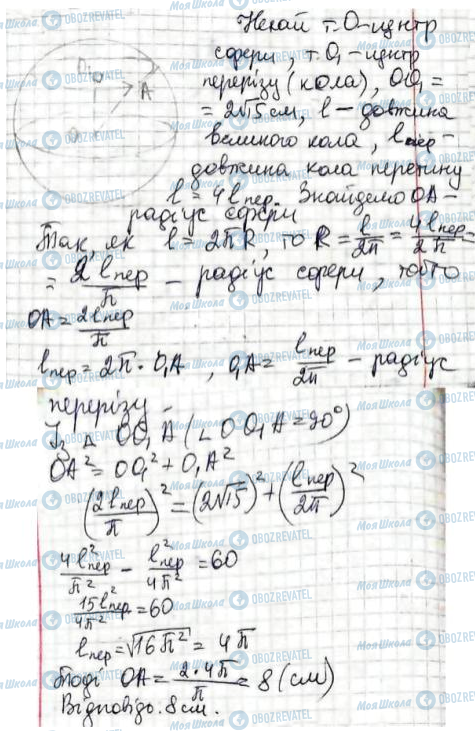 Нехай т. О - центр
сфери, т. О₁ - центр
перерізу (кола), ОО₁ =
= 2√15 см, l - довжина
великого кола, lпер -
довжина кола перетину
l = 4lпер. Знайдемо ОА -
радіус сфери
Так як l = 2πR, то R = l/2π = 4lпер/2π =
= 2lпер/π - радіус сфери, тобто
ОА = 2lпер/π
lпер = 2π · О₁А, О₁А = lпер/2π - радіус
перерізу
Із Δ ОО₁А (∠ОО₁А = 90°)
ОА² = ОО₁² + О₁А²
(2lпер/π)² = (2√15)² + (lпер/2π)²
4l²пер/π² - l²пер/4π² = 60
15l²пер/4π² = 60
lпер = √16π² = 4π
Тоді ОА = 2·4π/π = 8 (см)
Відповідь: 8 см.
О₁
А
О